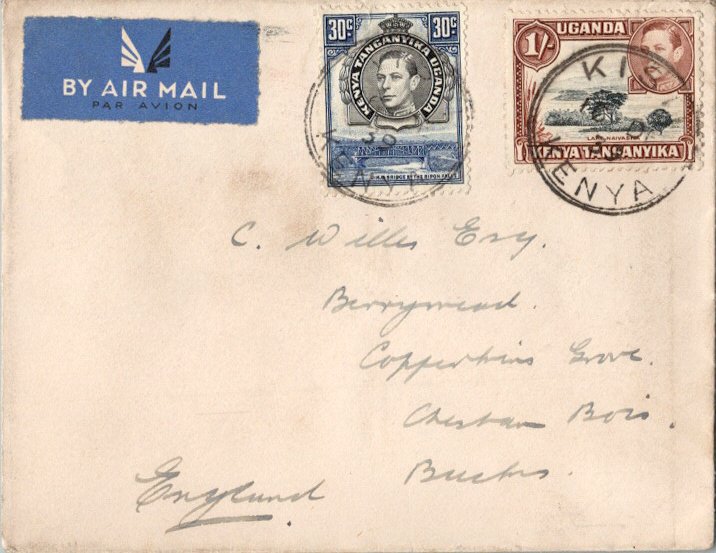 BY AIR MAIL
PAR AVION
30c 30c
KENYA TANGANYIKA UGANDA
JINJA BRIDGE BY THE RIPON FALLS
30
KENYA
UGANDA
1/-
LAKE NAIVASHA
KENYA TANGANYIKA
KIS
KENYA
C. Willes Esq.
Berrymead.
Copperkins Grove.
Chesham Bois.
Bucks.
England